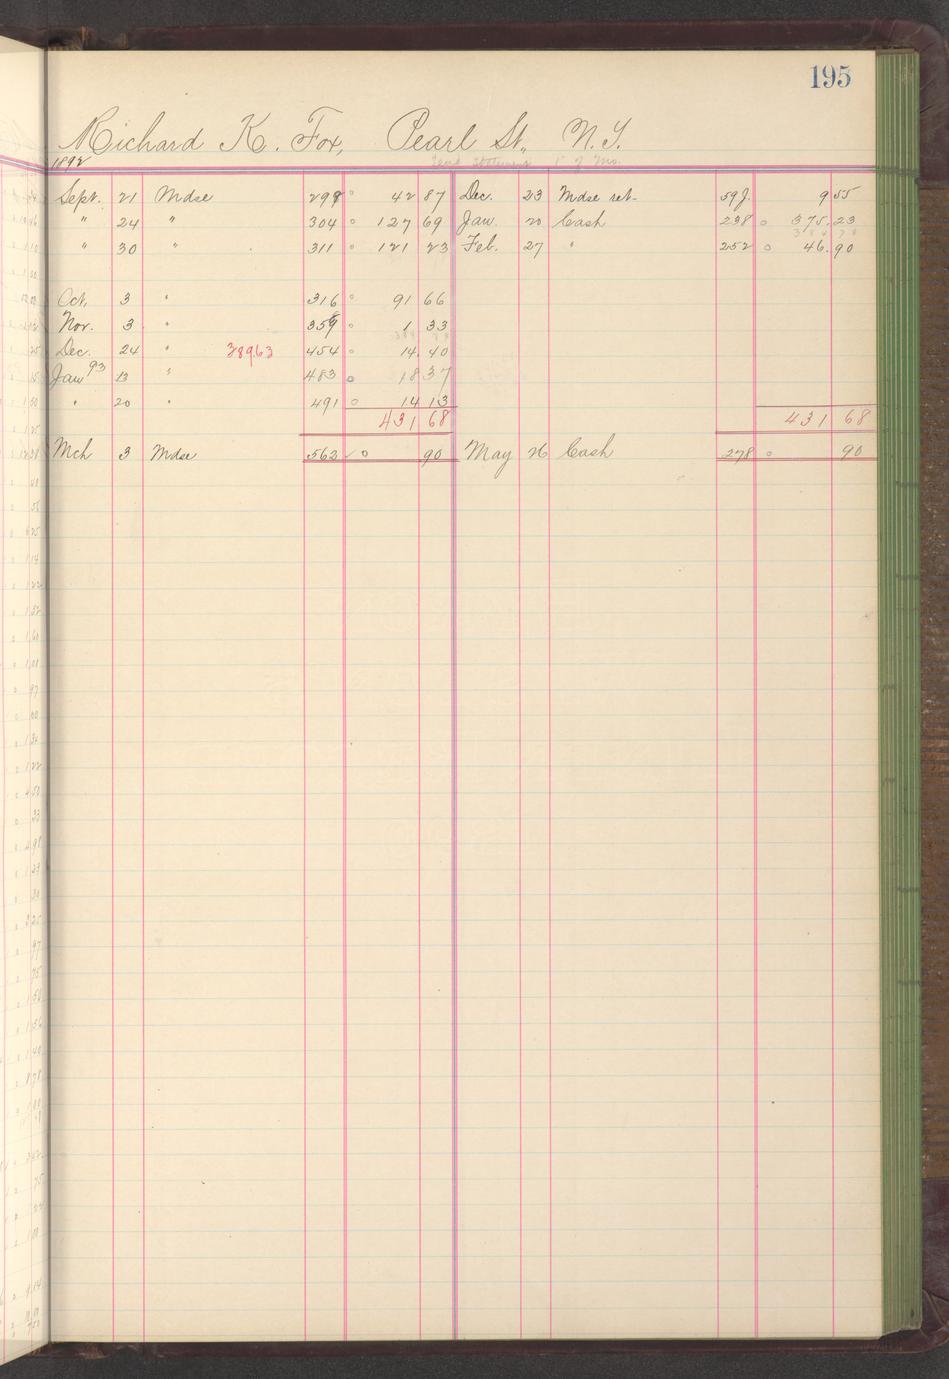 195
Richard K. Fox, Pearl St., N.Y.
1892 Send Statement 1st of Mo.
Sept. 21 Mdse 299 42 87 Dec. 23 Mdse ret. 59J. 9 55
" 24 " 304 127 69 Jan. 20 Cash 238 375.23
" 30 " 311 121 23 Feb. 27 " 252 46.90
Oct. 3 " 316 91 66
Nov. 3 " 359 1 33
Dec. 24 " 389.63 454 14.40
Jan 93 13 " 483 18 37
" 20 " 491 14 13
431 68 431 68
Mch 3 Mdse 562 90 May 26 Cash 278 90